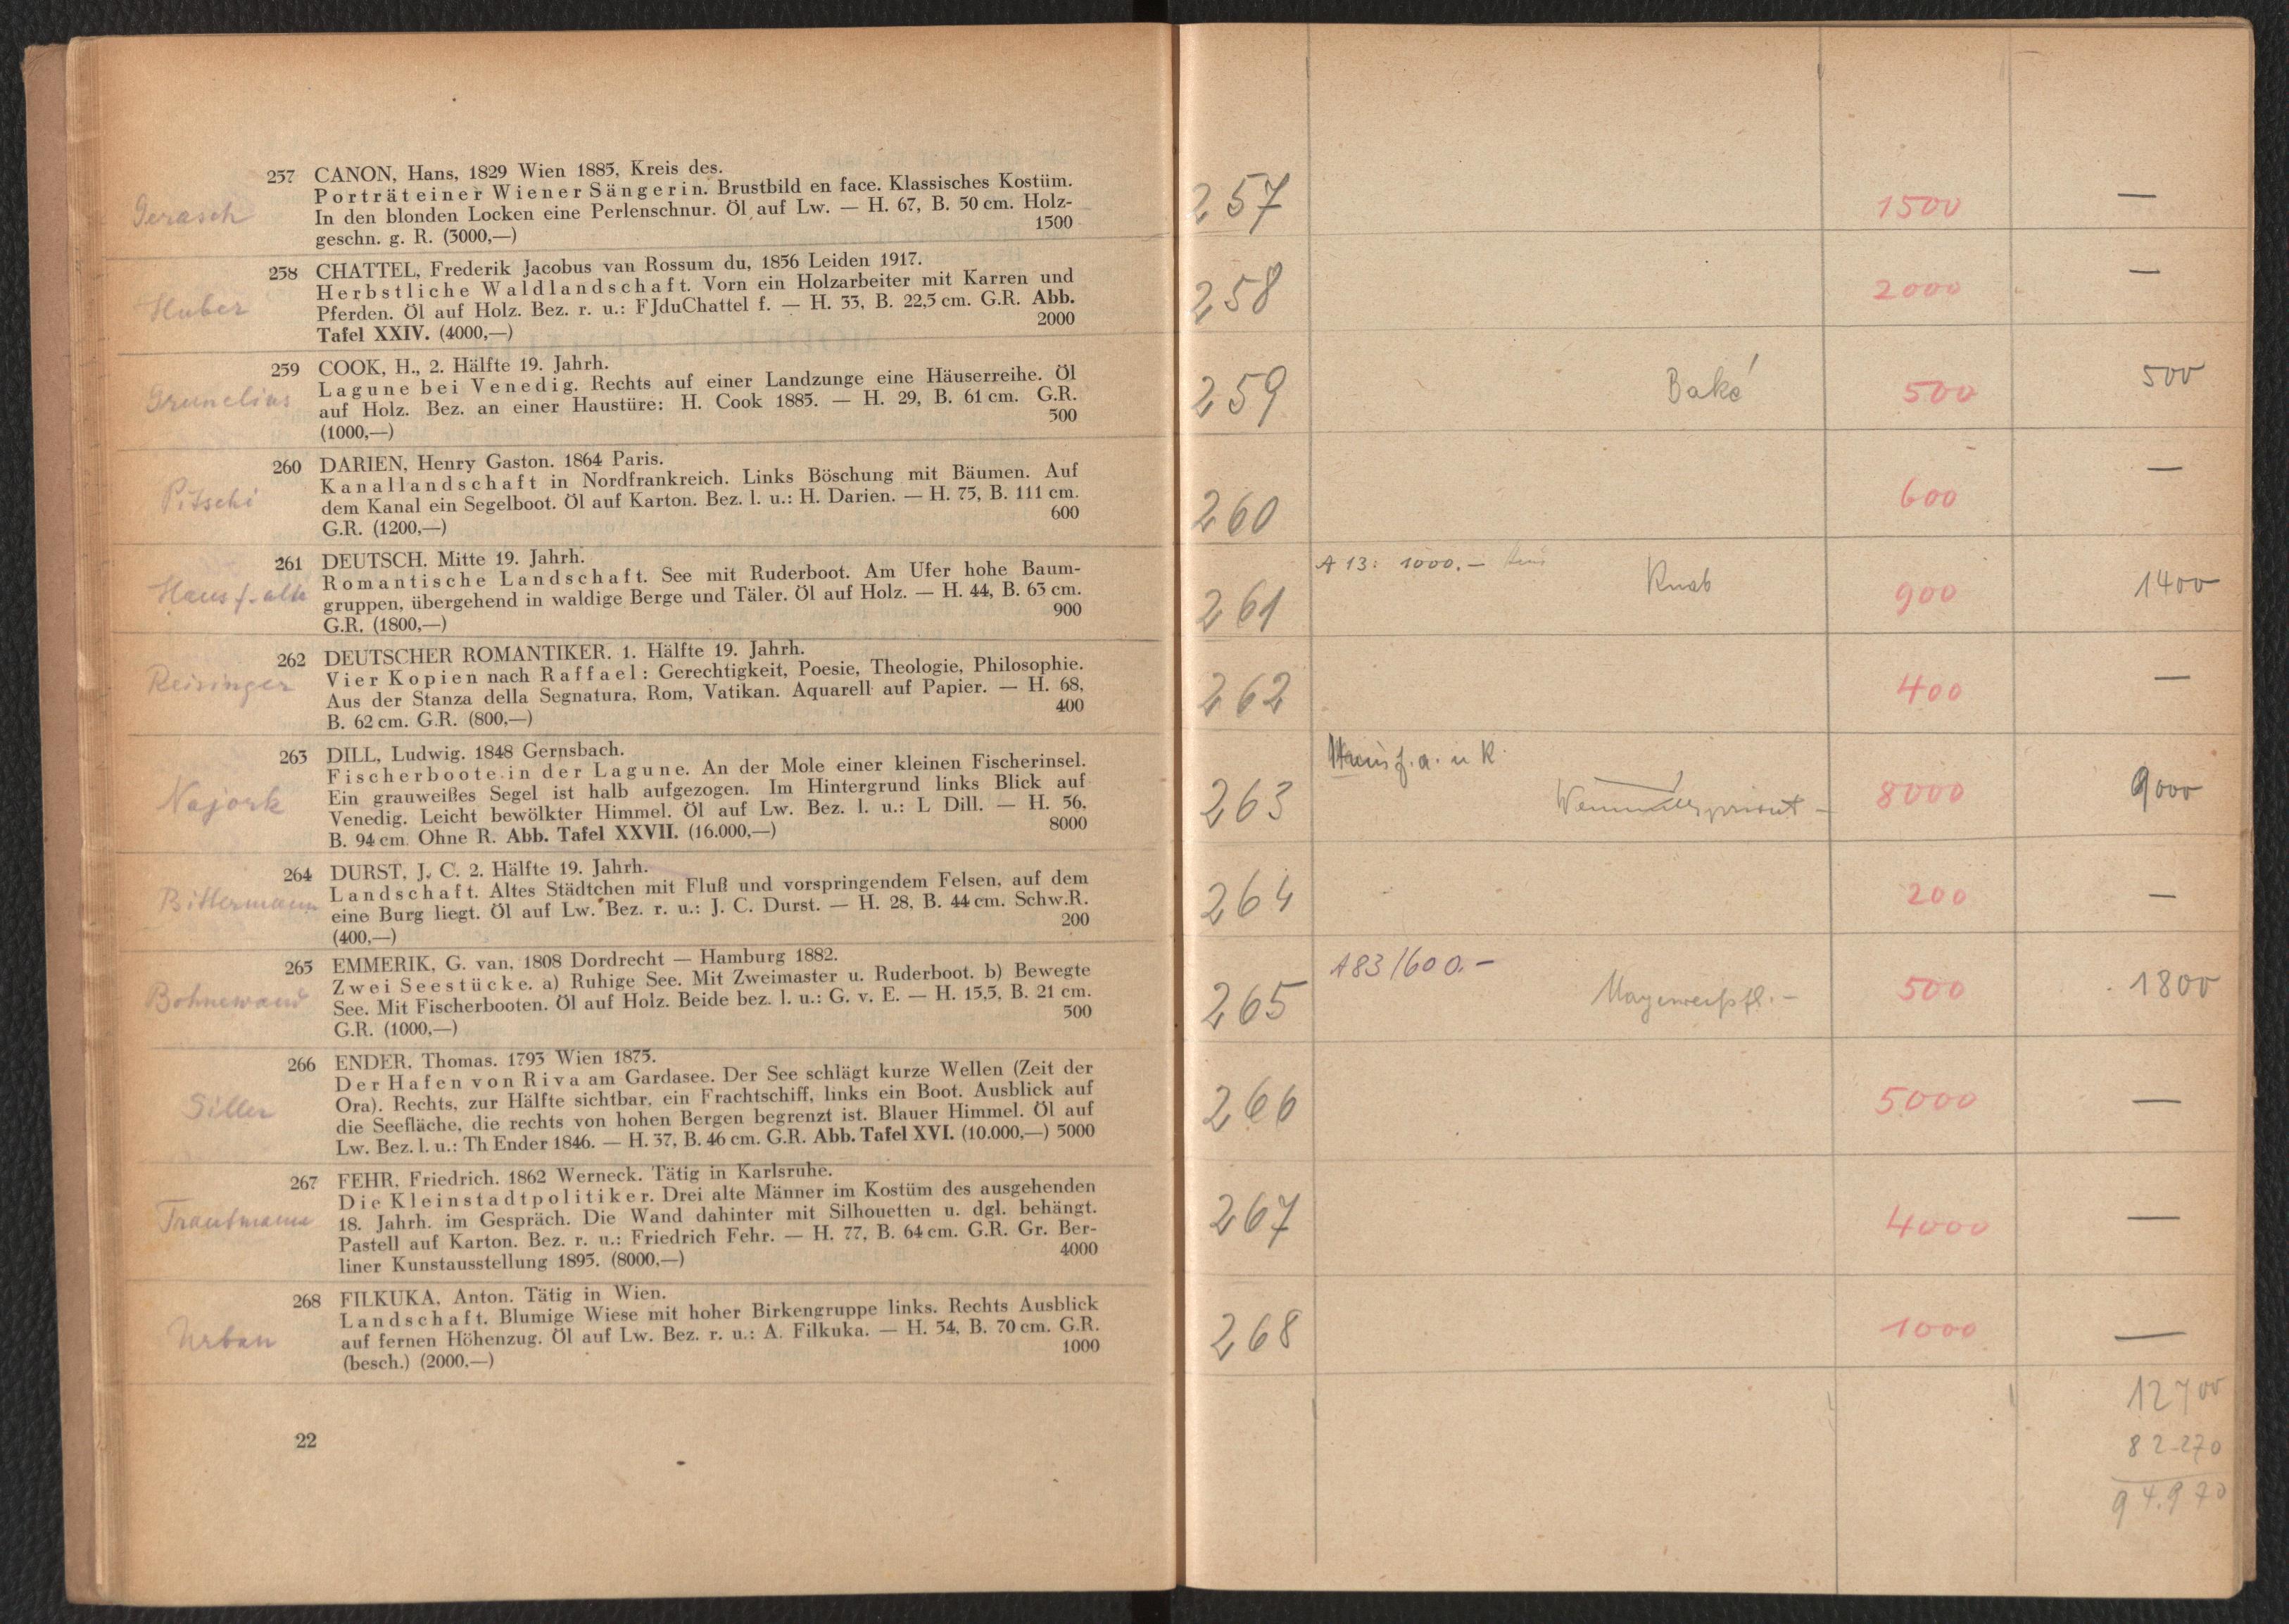 257 CANON, Hans, 1829 Wien 1885, Kreis des.
Porträt einer Wiener Sängerin. Brustbild en face. Klassisches Kostüm.
Gerasch
In den blonden Locken eine Perlenschnur. Öl auf Lw. — H. 67, B. 50 cm. Holz-
geschn. g. R. (3000,—) 1500
258 CHATTEL, Frederik Jacobus van Rossum du, 1856 Leiden 1917.
Herbstliche Waldlandschaft. Vorn ein Holzarbeiter mit Karren und
Huber
Pferden. Öl auf Holz. Bez. r. u.: FJduChattel f. — H. 33, B. 22,5 cm. G.R. Abb.
Tafel XXIV. (4000,—) 2000
259 COOK, H., 2. Hälfte 19. Jahrh.
Lagune bei Venedig. Rechts auf einer Landzunge eine Häuserreihe. Öl
Grunelius
auf Holz. Bez. an einer Haustüre: H. Cook 1885. — H. 29, B. 61 cm. G.R.
(1000,—) 500
260 DARIEN, Henry Gaston. 1864 Paris.
Kanallandschaft in Nordfrankreich. Links Böschung mit Bäumen. Auf
Pitschi
dem Kanal ein Segelboot. Öl auf Karton. Bez. l. u.: H. Darien. — H. 75, B. 111 cm.
G.R. (1200,—) 600
261 DEUTSCH. Mitte 19. Jahrh.
Romantische Landschaft. See mit Ruderboot. Am Ufer hohe Baum-
gruppen, übergehend in waldige Berge und Täler. Öl auf Holz. — H. 44, B. 63 cm.
G.R. (1800,—) 900
262 DEUTSCHER ROMANTIKER. 1. Hälfte 19. Jahrh.
Vier Kopien nach Raffael: Gerechtigkeit, Poesie, Theologie, Philosophie.
Reisinger
Aus der Stanza della Segnatura, Rom, Vatikan. Aquarell auf Papier. — H. 68,
B. 62 cm. G.R. (800,—) 400
263 DILL, Ludwig. 1848 Gernsbach.
Fischerboote in der Lagune. An der Mole einer kleinen Fischerinsel.
Ein grauweißes Segel ist halb aufgezogen. Im Hintergrund links Blick auf
Najork
Venedig. Leicht bewölkter Himmel. Öl auf Lw. Bez. l. u.: L Dill. — H. 56,
B. 94 cm. Ohne R. Abb. Tafel XXVII. (16.000,—) 8000
264 DURST, J. C. 2. Hälfte 19. Jahrh.
Landschaft. Altes Städtchen mit Fluß und vorspringendem Felsen, auf dem
Bittermann
eine Burg liegt. Öl auf Lw. Bez. r. u.: J. C. Durst. — H. 28, B. 44 cm. Schw.R.
(400,—) 200
265 EMMERIK, G. van, 1808 Dordrecht — Hamburg 1882.
Zwei Seestücke. a) Ruhige See. Mit Zweimaster u. Ruderboot. b) Bewegte
See. Mit Fischerbooten. Öl auf Holz. Beide bez. l. u.: G. v. E. — H. 15,5, B. 21 cm.
G.R. (1000,—) 500
266 ENDER, Thomas. 1793 Wien 1875.
Der Hafen von Riva am Gardasee. Der See schlägt kurze Wellen (Zeit der
Ora). Rechts, zur Hälfte sichtbar, ein Frachtschiff, links ein Boot. Ausblick auf
Siller
die Seefläche, die rechts von hohen Bergen begrenzt ist. Blauer Himmel. Öl auf
Lw. Bez. l. u.: Th Ender 1846. — H. 37, B. 46 cm. G.R. Abb. Tafel XVI. (10.000,—) 5000
267 FEHR, Friedrich. 1862 Werneck. Tätig in Karlsruhe.
Die Kleinstadtpolitiker. Drei alte Männer im Kostüm des ausgehenden
Trautmann
18. Jahrh. im Gespräch. Die Wand dahinter mit Silhouetten u. dgl. behängt.
Pastell auf Karton. Bez. r. u.: Friedrich Fehr. — H. 77, B. 64 cm. G.R. Gr. Ber-
liner Kunstausstellung 1895. (8000,—) 4000
268 FILKUKA, Anton. Tätig in Wien.
Landschaft. Blumige Wiese mit hoher Birkengruppe links. Rechts Ausblick
Urban
auf fernen Höhenzug. Öl auf Lw. Bez. r. u.: A. Filkuka. — H. 54, B. 70 cm. G.R.
(besch.) (2000,—) 1000
22
257 1500 —
258 2000 —
259 Baké 500 500
260 600 —
A 13: 1000.—
261 Knab 900 1400
262 400 —
263 8000 9000
264 200 —
A 83/600.—
265 500 1800
266 5000 —
267 4000 —
268 1000 —
12700
82.270
94.970